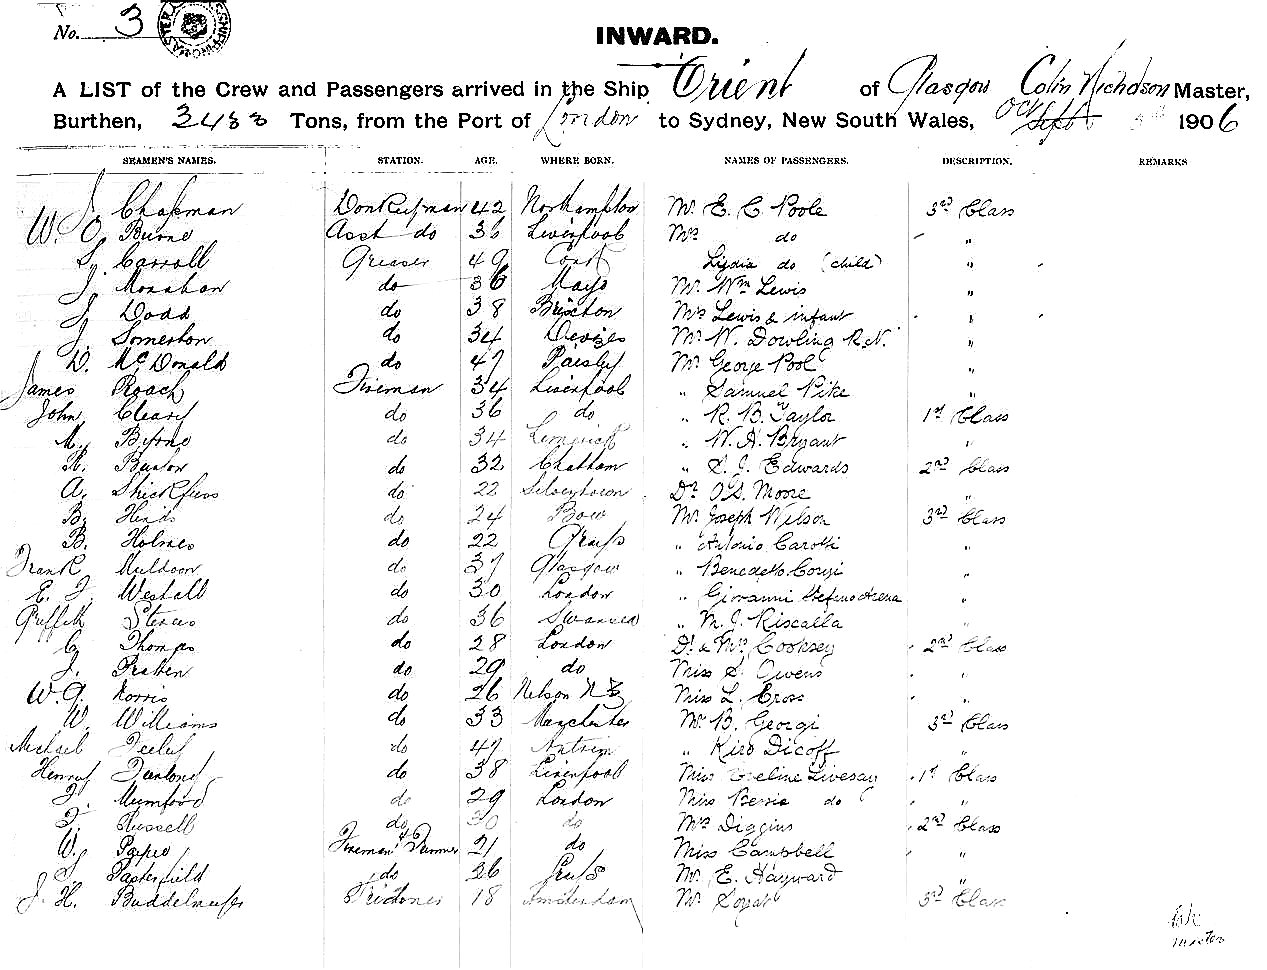 No. 3
INWARD.
A LIST of the Crew and Passengers arrived in the Ship Orient of Glasgow Colin Nicholson Master,
Burthen, 3483 Tons, from the Port of London to Sydney, New South Wales, Oct 1906
SEAMEN'S NAMES. STATION. AGE. WHERE BORN. NAMES OF PASSENGERS. DESCRIPTION. REMARKS
J. Chapman Donkeyman 42 Northampton Mr. E. C. Poole 3rd Class
W. O. Burne Asst do 36 Liverpool Mrs do "
Carroll Greaser 49 Cork Lydia do (child) "
J. Monahan do 36 Mayo Mr. Wm Lewis "
J. Dodd do 38 Brixton Mrs Lewis & infant "
J. Somerton do 34 Devizes Mr. W. Dowling R.N. "
D. McDonald do 47 Paisley Mr George Pool "
James Roach Fireman 34 Liverpool " Samuel Pike "
John Cleary do 36 do " R. B. Taylor 1st Class
M. Byrne do 34 Limerick " W. A. Bryant "
R. Barlow do 32 Chatham " S. J. Edwards 2nd Class
A. do 22 Silvertown Dr. O. S. Moore "
B. Hinds do 24 Bow Mr Joseph Wilson 3rd Class
B. Holmes do 22 Grays " Antonio Carotti "
Frank Muldoon do 37 Glasgow " Benedetto "
E. J. Westall do 30 London " Giovanni Stefino Arena "
Griffith do 36 Swansea " M. J. Riscalla "
C. Thomas do 28 London Dr. & Mrs. Cooksey 2nd Class
J. do 29 do Miss S. Owens "
W. G. Norris do 26 Nelson NZ Miss L. Cross "
W. Williams do 33 Manchester Mr. B. Georgi 3rd Class
Michael do 47 Antrim " Kiro Dicoff "
Henry Furlong do 38 Liverpool Miss Eveline Livesay 1st Class
F. Mumford do 29 London Miss Bessie do "
F. Russell do 30 do Mrs Diggins 2nd Class
W. Fireman & Trimmer 21 do Miss Campbell "
do 26 Grays Mr. E. Hayward "
J. H. 18 Amsterdam Mr 3rd Class